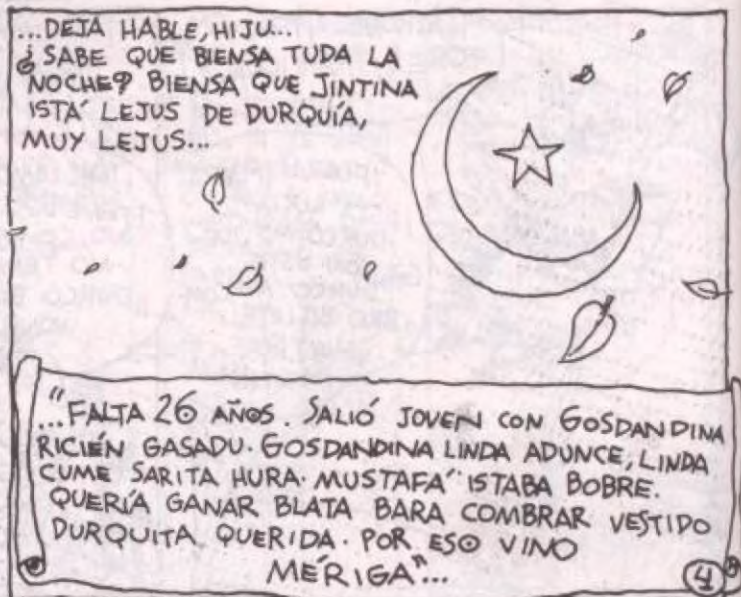 ...DEJA HABLE, HIJU...
¿SABE QUE BIENSA TUDA LA
NOCHE? BIENSA QUE JINTINA
ISTÁ LEJUS DE DURQUÍA,
MUY LEJUS...
"...FALTA 26 AÑOS. SALIÓ JOVEN CON GOSDANDINA
RICIÉN GASADU. GOSDANDINA LINDA ADUNCE, LINDA
CUME SARITA HURA. MUSTAFÁ ISTABA BOBRE.
QUERÍA GANAR BLATA BARA COMBRAR VESTIDO
DURQUITA QUERIDA. POR ESO VINO
MÉRIGA"...
4